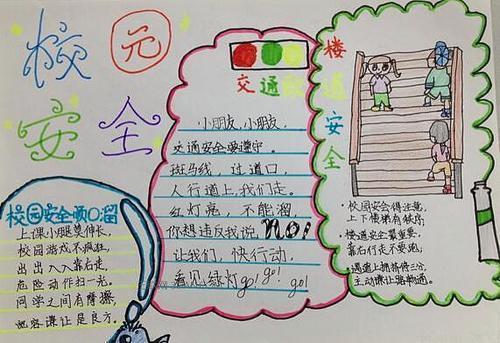 校园
安全
校园安全顺口溜
上课小腿莫伸长,
校园游戏不疯狂,
出出入入靠右走,
危险动作扫一光,
同学之间有摩擦,
宽容谦让是良方。
交通
小朋友,小朋友,
交通安全须遵守。
斑马线,过道口,
人行道上,我们走。
红灯亮,不能溜,
你想违反我说no!
让我们,快行动,
看见绿灯go! go! go!
楼道安全
·校园安全得注意,
上下楼梯有秩序;
·楼道安全最重要,
靠右行走不要跑;
上拥挤停三分,
主动谦让路畅通。